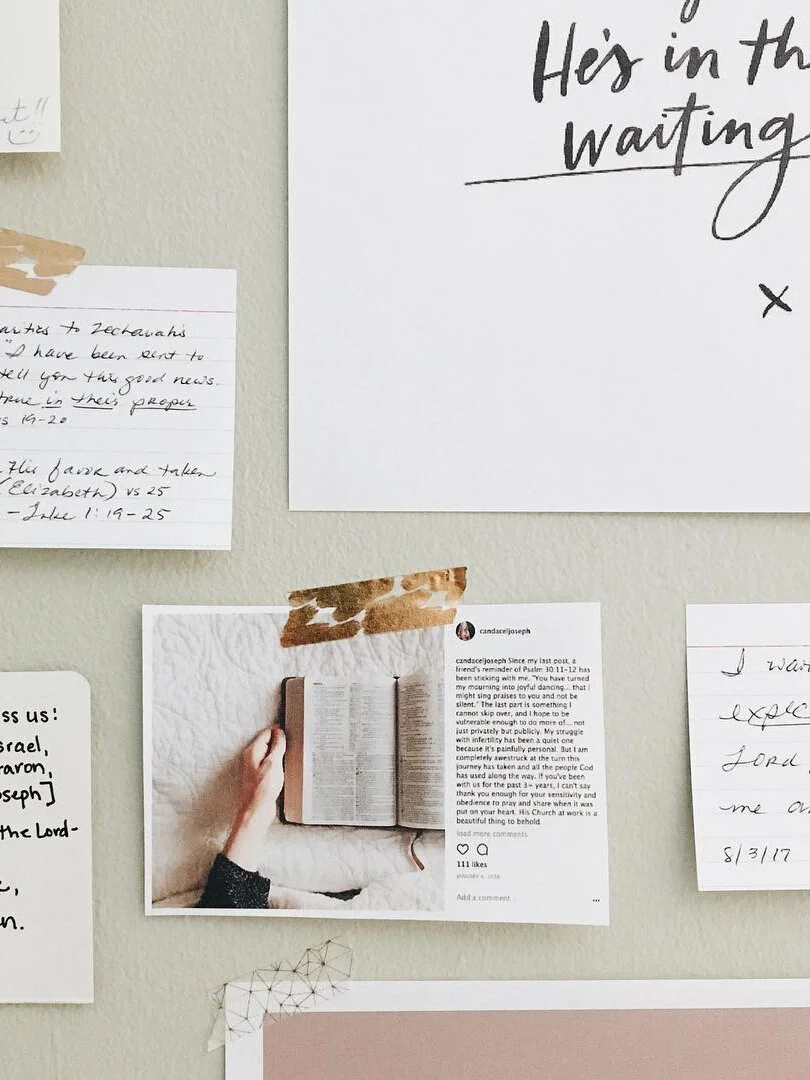 He's in th
waiting
x
arities to Zechariah's
"I have been sent to
tell you this good news.
true in their proper
vs 19-20
His favor and taken
(Elizabeth) vs 25
- Luke 1:19-25
candaceljoseph
candaceljoseph Since my last post, a
friend's reminder of Psalm 30:11-12 has
been sticking with me. "You have turned
my mourning into joyful dancing... that I
might sing praises to you and not be
silent." The last part is something I
cannot skip over, and I hope to be
vulnerable enough to do more of... not
just privately but publicly. My struggle
with infertility has been a quiet one
because it's painfully personal. But I am
completely awestruck at the turn this
journey has taken and all the people God
has used along the way. If you've been
with us for the past 3+ years, I can't say
thank you enough for your sensitivity and
obedience to pray and share when it was
put on your heart. His Church at work is a
beautiful thing to behold.
load more comments
111 likes
Add a comment...
ss us:
srael,
aron,
oseph]
the Lord-
e,
n.
I wai
expec
Lord
me an
8/3/17